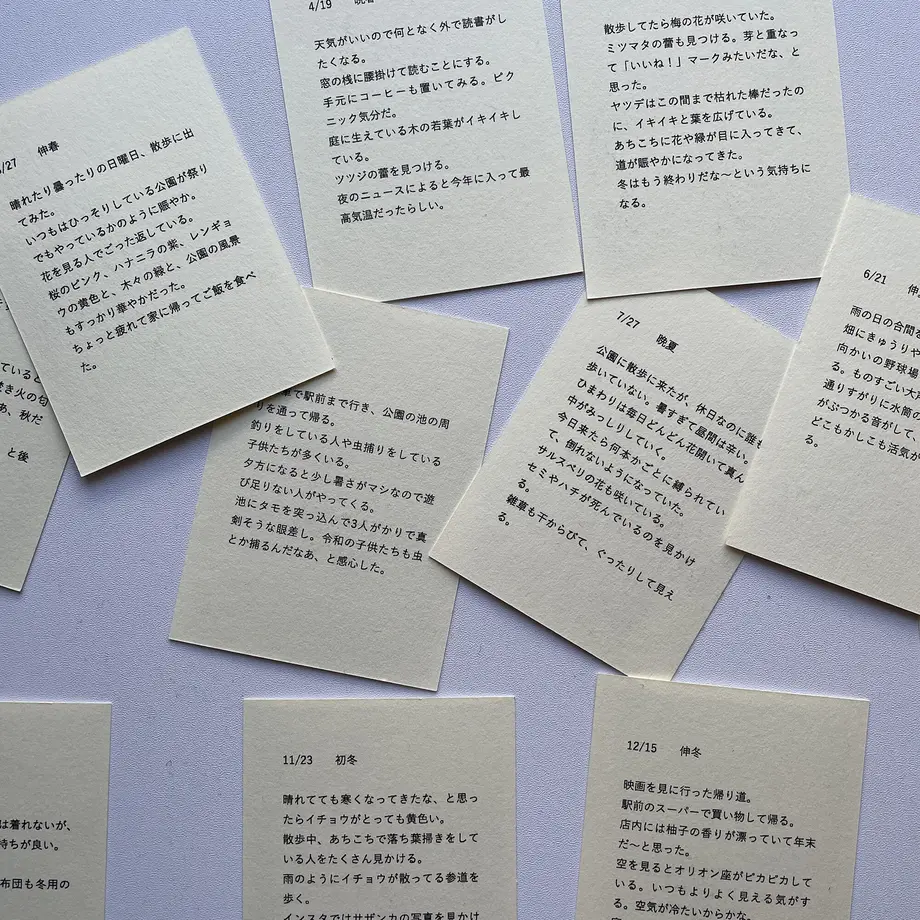 4/19
天気がいいので何となく外で読書がし
たくなる。
窓の桟に腰掛けて読むことにする。
手元にコーヒーも置いてみる。ピク
ニック気分だ。
庭に生えている木の若葉がイキイキし
ている。
ツツジの蕾を見つける。
夜のニュースによると今年に入って最
高気温だったらしい。
散歩してたら梅の花が咲いていた。
ミツマタの蕾も見つける。芽と重なっ
て「いいね!」マークみたいだな、と
思った。
ヤツデはこの間まで枯れた棒だったの
に、イキイキと葉を広げている。
あちこちに花や緑が目に入ってきて、
道が賑やかになってきた。
冬はもう終わりだな〜という気持ちに
なる。
/27 仲春
晴れたり曇ったりの日曜日、散歩に出
てみた。
いつもはひっそりしている公園が祭り
でもやっているかのように賑やか。
花を見る人でごった返している。
桜のピンク、ハナニラの紫、レンギョ
ウの黄色と、木々の緑と、公園の風景
もすっかり華やかだった。
ちょっと疲れて家に帰ってご飯を食べ
た。
6/21
雨の日の合間
畑にきゅうりや
向かいの野球場
る。ものすごい大声
通りすがりに水筒の
がぶつかる音がして、
どこもかしこも活気が
る。
ていると
き火の匂
あ、秋だ
と後
で駅前まで行き、公園の池の周
りを通って帰る。
釣りをしている人や虫捕りをしている
子供たちが多くいる。
夕方になると少し暑さがマシなので遊
び足りない人がやってくる。
池にタモを突っ込んで3人がかりで真
剣そうな眼差し。令和の子供たちも虫
とか捕るんだなあ、と感心した。
7/27 晩夏
公園に散歩に来たが、休日なのに誰も
歩いていない。暑すぎて昼間は辛い。
ひまわりは毎日どんどん花開いて真ん
中がみっしりしていく。
今日来たら何本かごとに縛られてい
て、倒れないようになっていた。
サルスベリの花も咲いている。
セミやハチが死んでいるのを見かけ
る。
雑草も干からびて、ぐったりして見え
る。
は着れないが、
持ちが良い。
布団も冬用の
11/23 初冬
晴れてても寒くなってきたな、と思っ
たらイチョウがとっても黄色い。
散歩中、あちこちで落ち葉掃きをして
いる人をたくさん見かける。
雨のようにイチョウが散ってる参道を
歩く。
インスタではサザンカの写真を見かけ
12/15 仲冬
映画を見に行った帰り道。
駅前のスーパーで買い物して帰る。
店内には柚子の香りが漂っていて年末
だ〜と思った。
空を見るとオリオン座がピカピカして
いる。いつもよりよく見える気がす
る。空気が冷たいからかな。